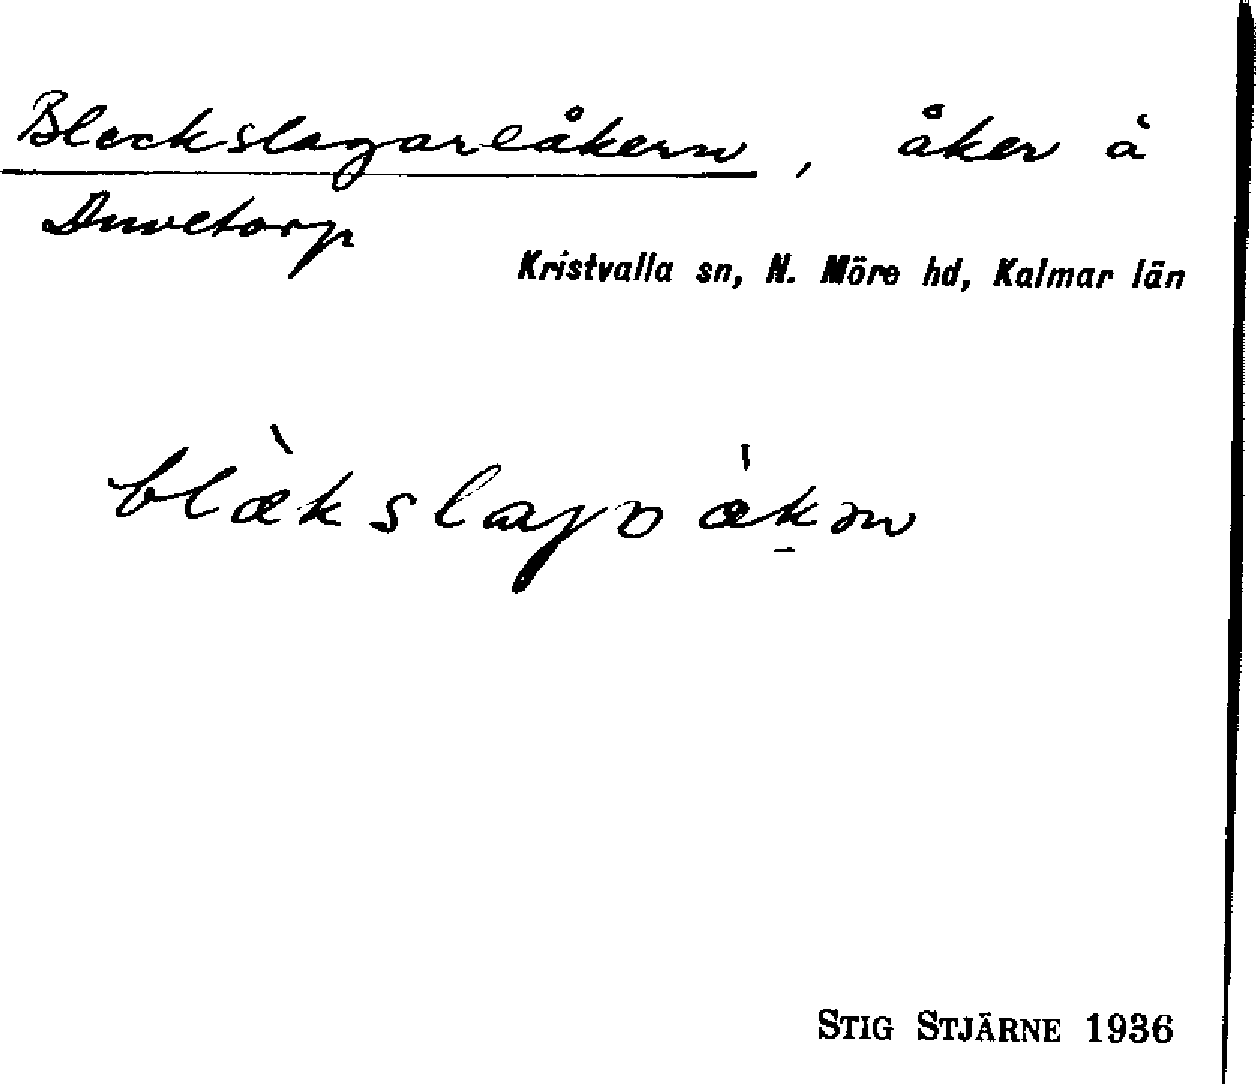 Bleckslagareåkern, åker å
Duvetorp
Kristvalla sn, N. Möre hd, Kalmar län
STIG STJÄRNE 1936